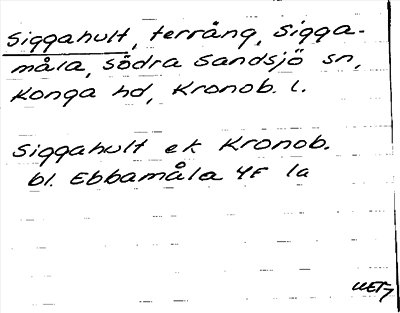 Siggahult, terräng, Sigga-
måla, Södra Sandsjö sn,
Konga hd, Kronob. l.
Siggahult ek Kronob.
bl. Ebbamåla 4F 1a